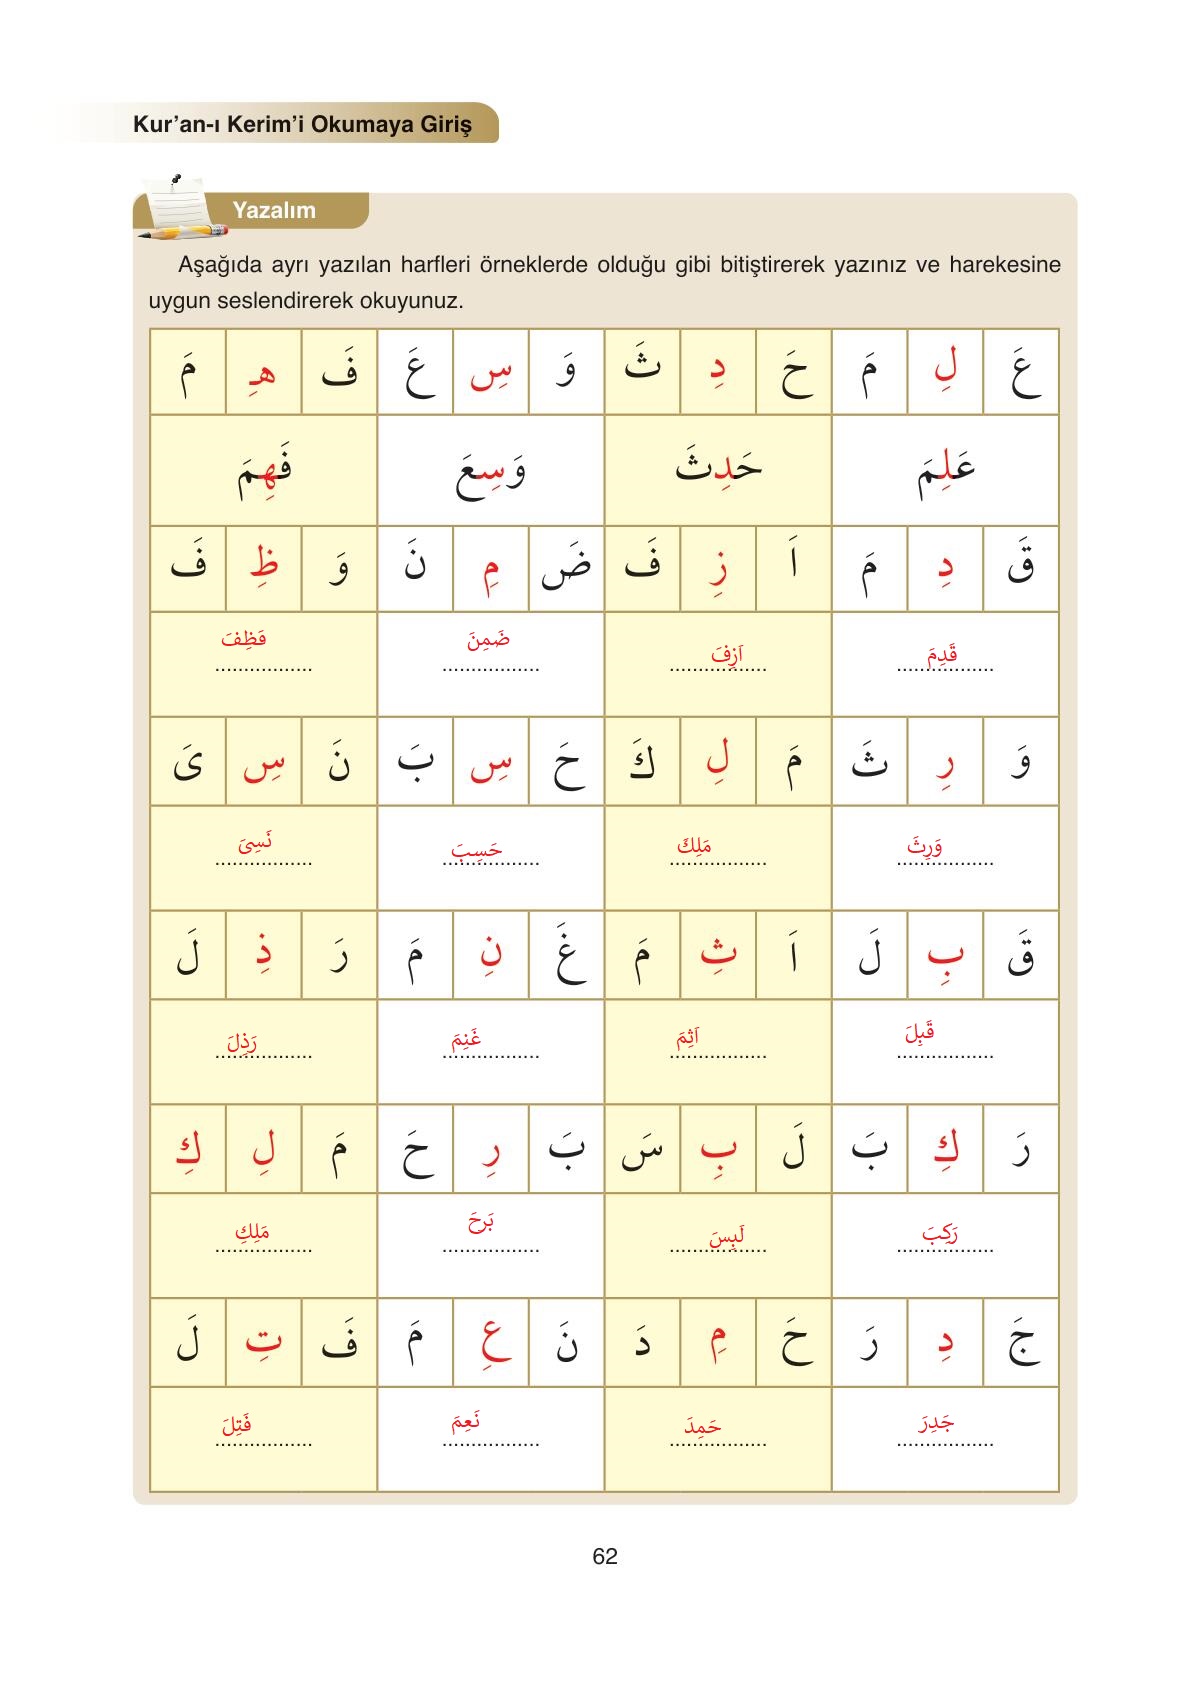 Kur’an-ı Kerim’i Okumaya Giriş
Yazalım
Aşağıda ayrı yazılan harfleri örneklerde olduğu gibi bitiştirerek yazınız ve harekesine
uygun seslendirerek okuyunuz.
عَ لِ مَ حَ دِ ثَ وَ سِ عَ فَ هِـ مَ
عَلِمَ حَدِثَ وَسِعَ فَهِمَ
قَ دِ مَ اَ زِ فَ ضَ مِ نَ وَ ظِ فَ
قَدِمَ اَزِفَ ضَمِنَ فَظِفَ
................. ................. ................. .................
وَ رِ ثَ مَ لِ كَ حَ سِ بَ نَ سِ ىَ
وَرِثَ مَلِكَ حَسِبَ نَسِىَ
................. ................. ................. .................
قَ بِ لَ اَ ثِ مَ غَ نِ مَ رَ ذِ لَ
قَبِلَ اَثِمَ غَنِمَ رَذِلَ
................. ................. ................. .................
رَ كِ بَ لَ بِ سَ بَ رِ حَ مَ لِ كِ
رَكِبَ لَبِسَ بَرِحَ مَلِكِ
................. ................. ................. .................
جَ دِ رَ حَ مِ دَ نَ عِ مَ فَ تِ لَ
جَدِرَ حَمِدَ نَعِمَ فَتِلَ
................. ................. ................. .................
62